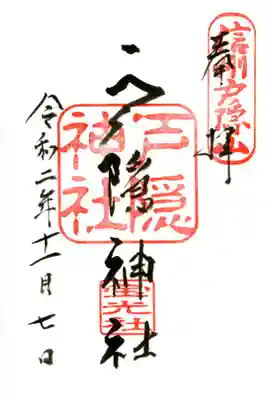 信州戸隠山
奉拝
戸隠神社
戸隠神社
宝光社
令和二年十一月七日